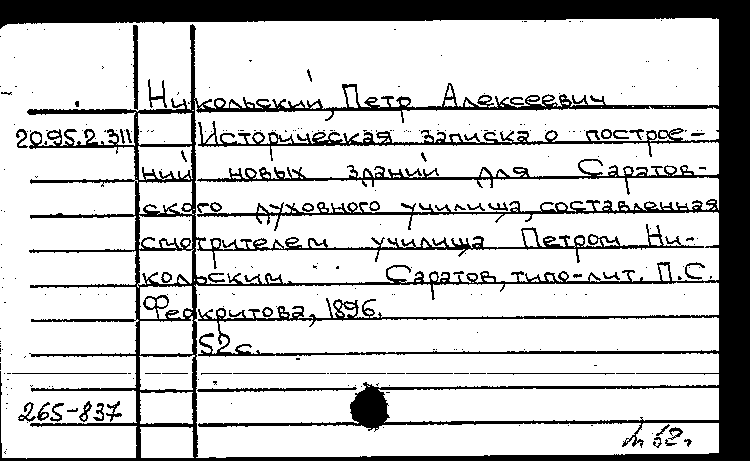 Никольский, Петр Алексеевич
20.95.2.311 Историческая записка о построе-
ний новых зданий для Саратов-
ского духовного училища, составленная
смотрителем училища Петром Ни-
кольским. Саратов, типо-лит. П.С.
Феокритова, 1896.
52 с.
265-837